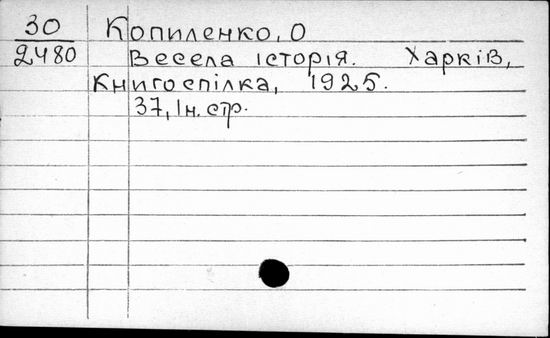 30 Копиленко, О
2480 Весела історія. Харків,
Книгоспілка, 1925.
37, Ін. стр.